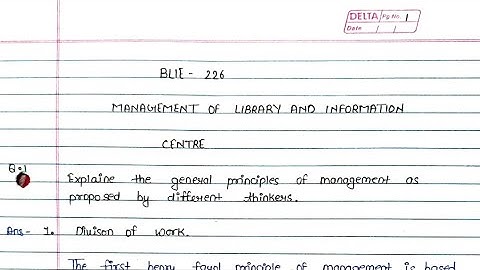 DELTA Pg No. 1
Date / /
BLIE - 226
MANAGEMENT OF LIBRARY AND INFORMATION
CENTRE
Q.1 Explaine the general principles of management as
proposed by different thinkers.
Ans- 1. Divison of work.
The first henry fayol principle of management is based